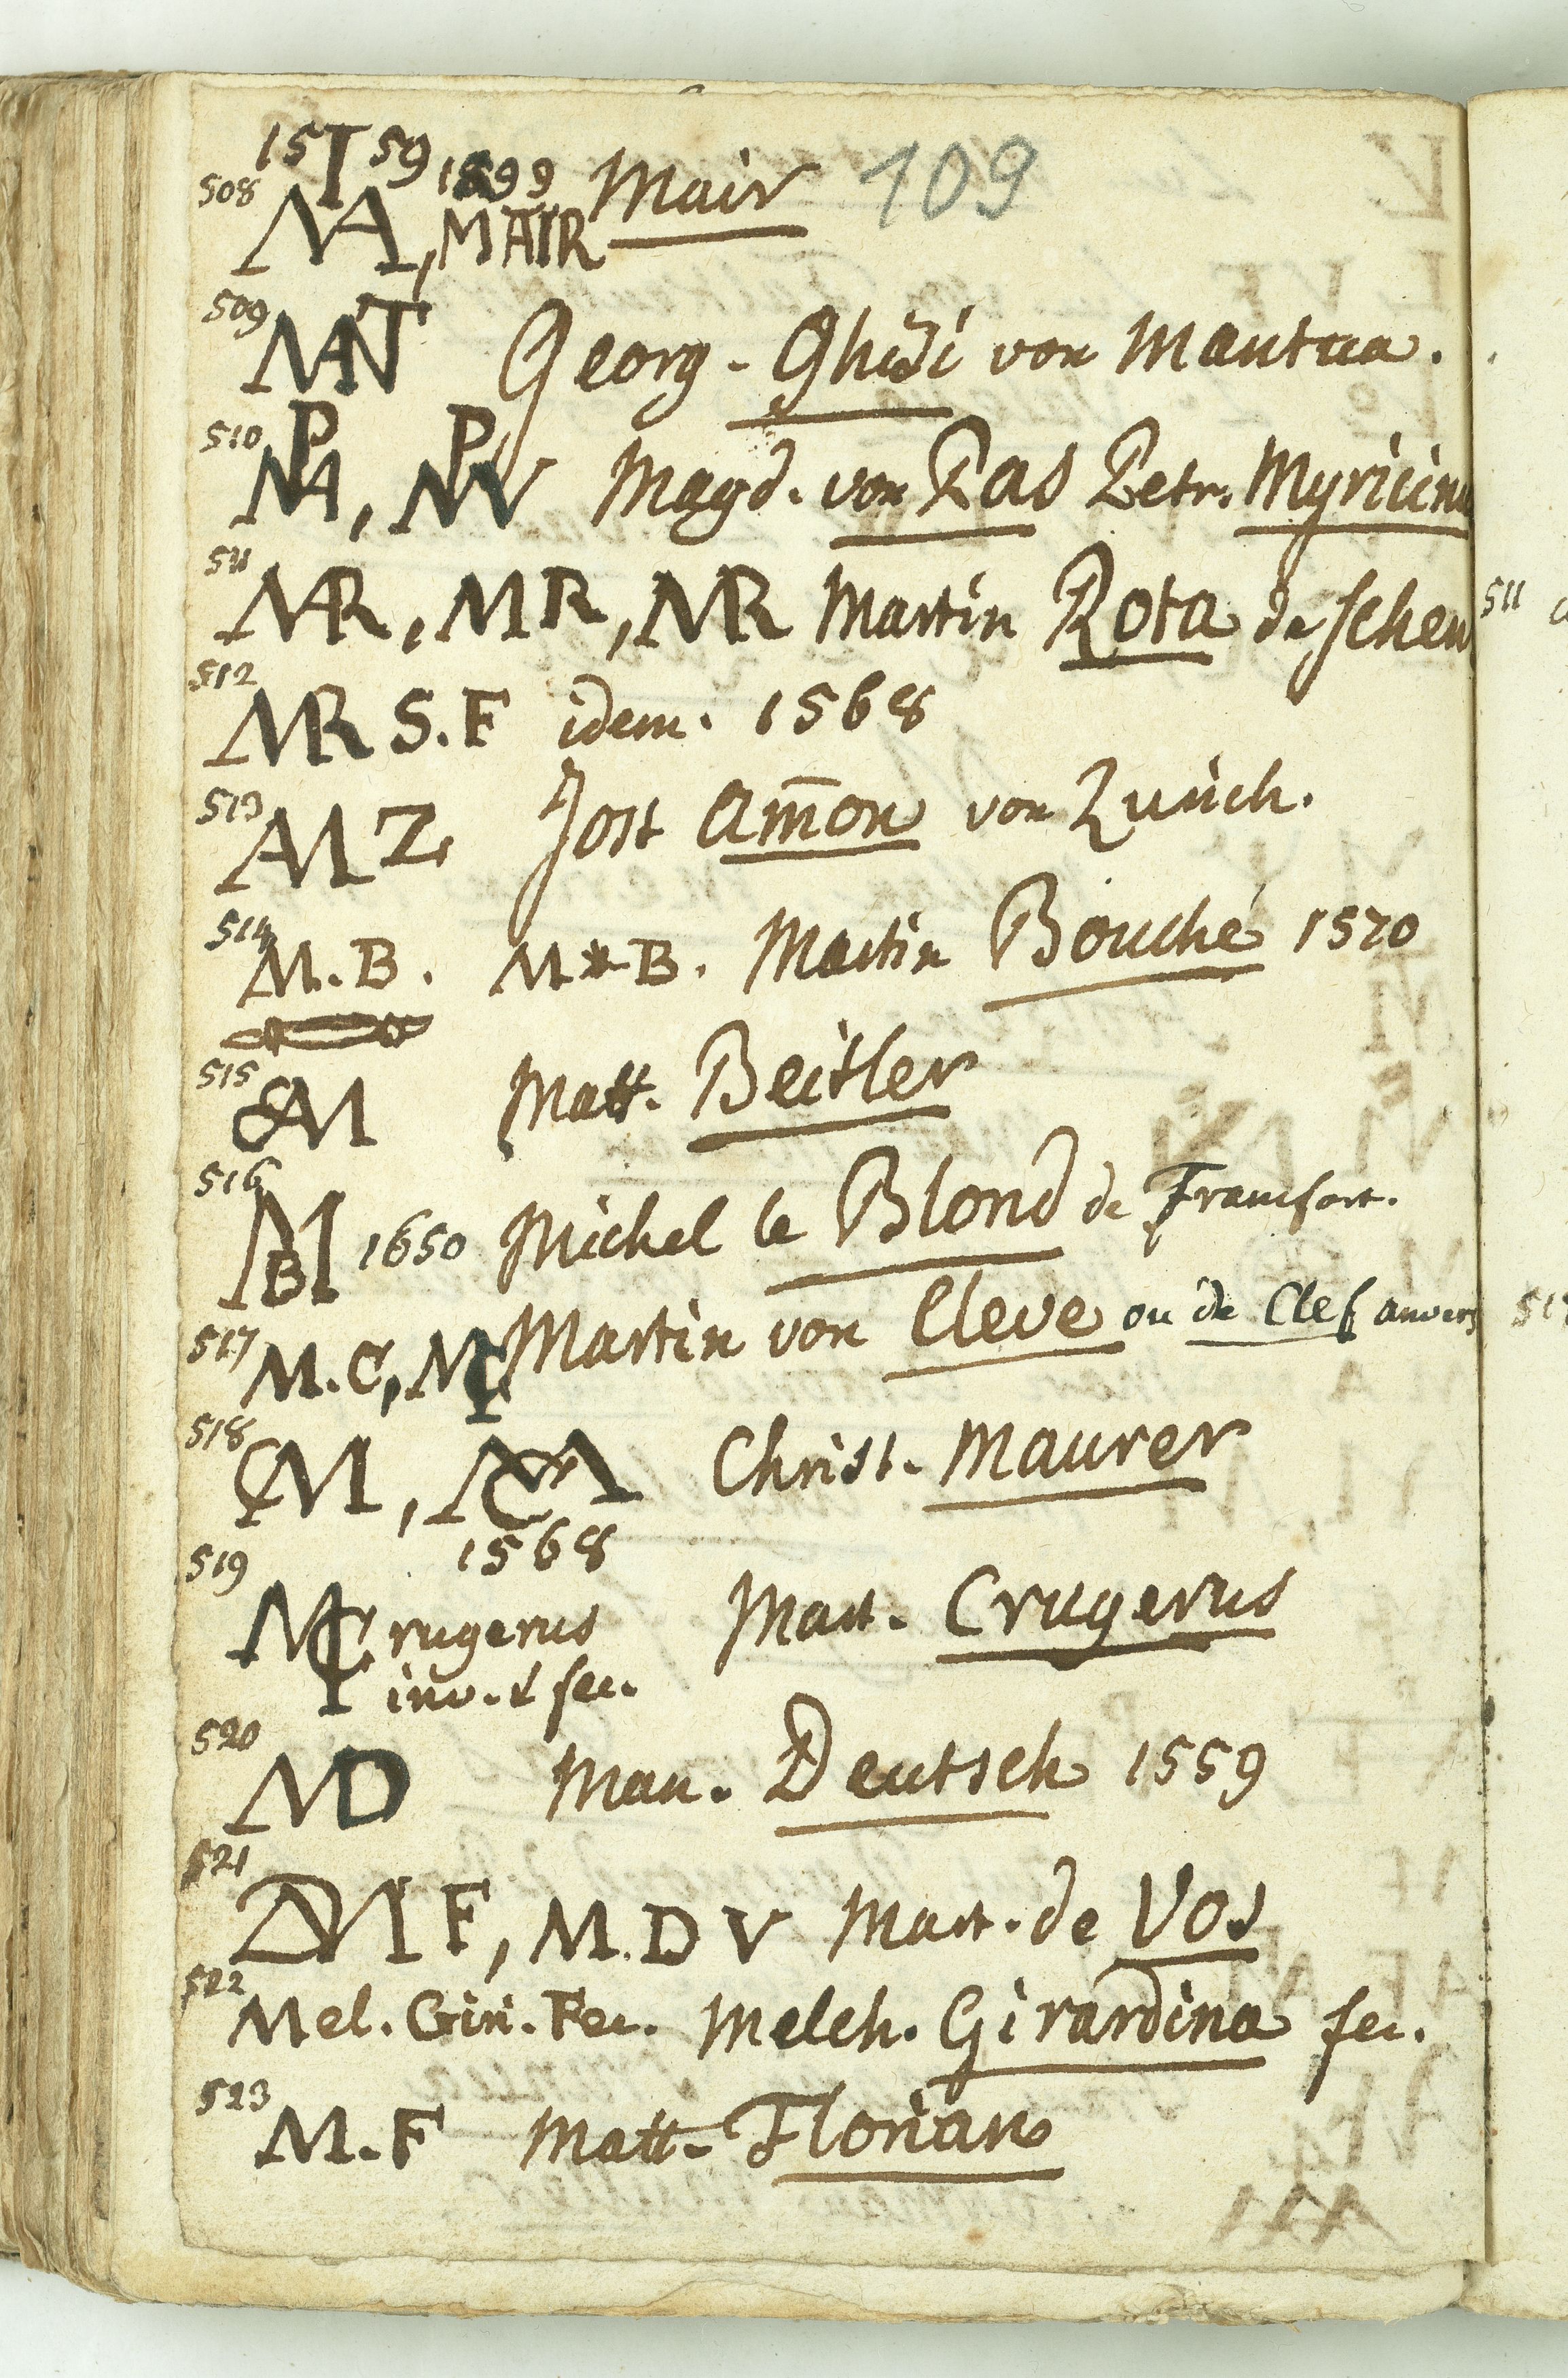 15 I 59 1599 Mair 109
508 MA, MAIR
509 MANT Georg-Ghidi von Mantua.
510 MPA, MPV Magd. von Pas Petr. Myricinu
511 MAR, MR, MR Martin Rota de seben
512 MR S.F idem. 1568
513 AM Z Jost Am̄on von Zurich.
514 M.B. M*B. Martin Bouché 1570
515 M Matt. Beitler
516 MB 1650 Michel le Blond de Francfort.
517 M.C, MC Martin von Cleve ou de Clef anvers
518 CM, MC Christ. Maurer
1568
519 MCrugerus Matt. Crugerus
inv. & fec.
520 MD Man. Deutsch 1559
521 DM F, M.D V Mart. de Vos
522 Mel. Giri. Fec. Melch. Girardina fec.
523 M.F Matt. Florian
511